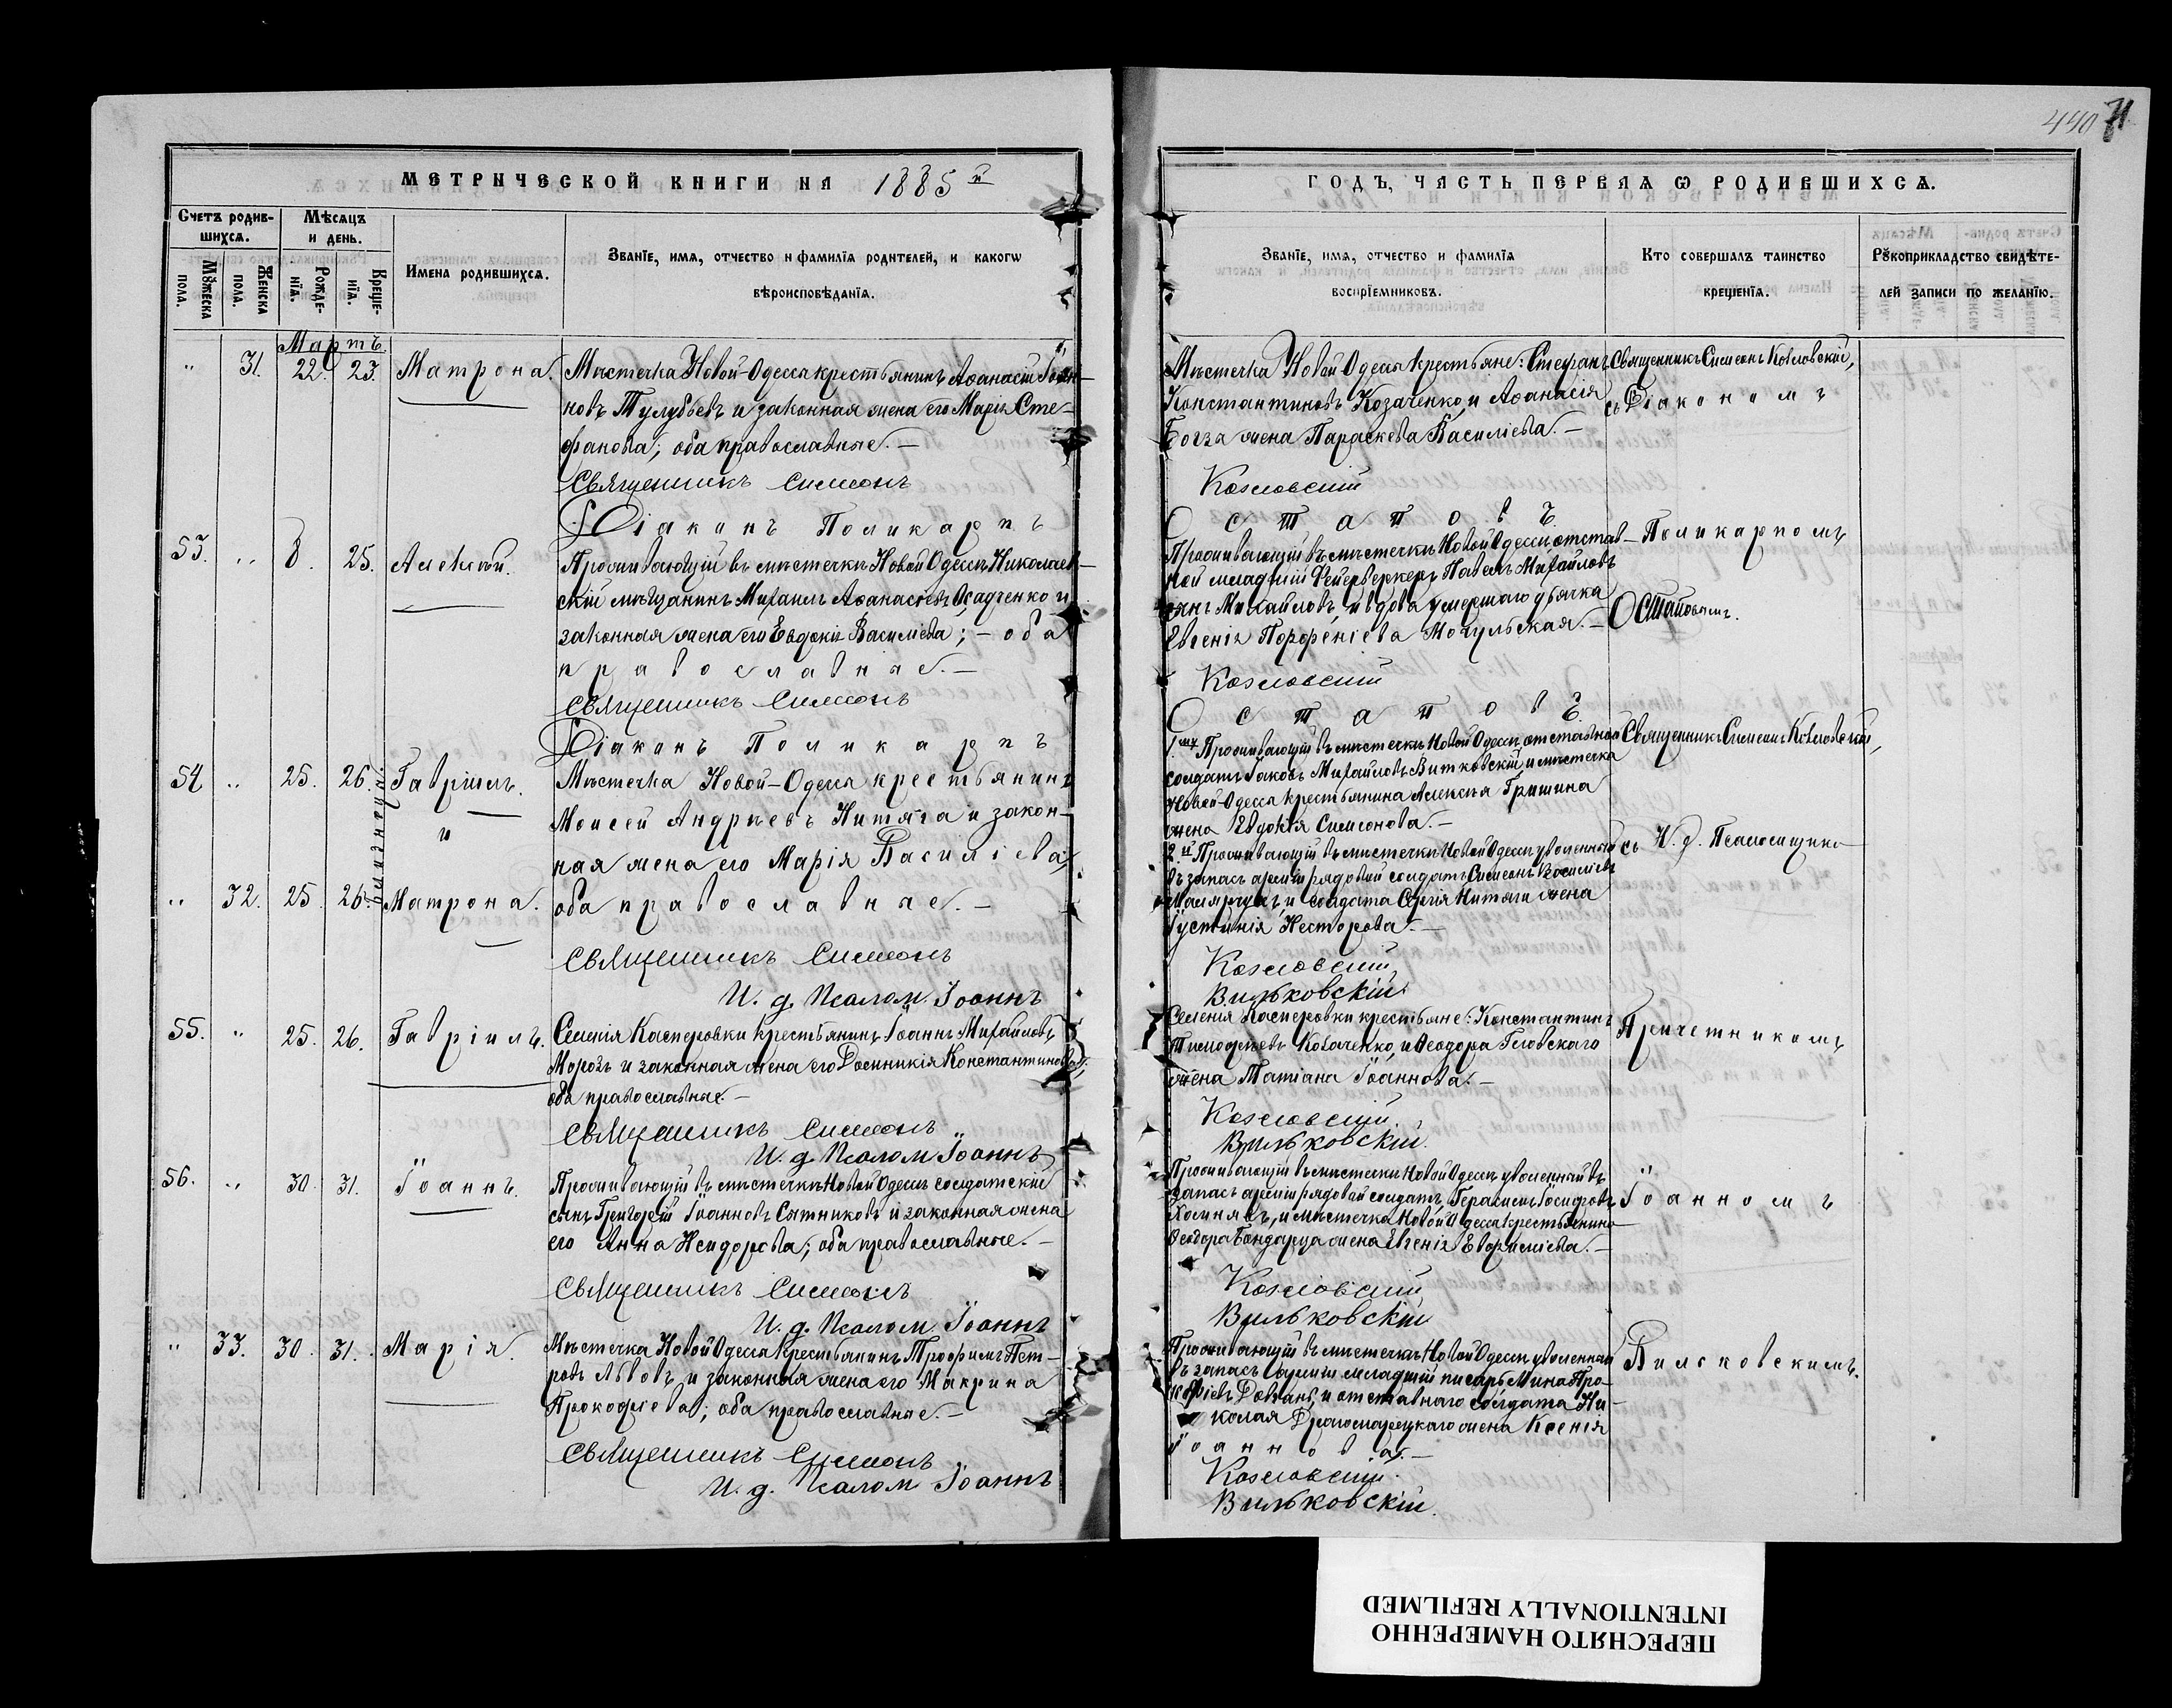 440 71
МЕТРИЧЕСКОЙ КНИГИ НА 1885 й
Счетъ родив-
шихсѧ.
Мѣсѧцъ
и день.
Мꙋжеска
пола.
Женска
пола.
Рожде-
нїѧ.
Креще-
нїѧ.
Имена родившихсѧ.
Званїе, имѧ, отчество и фамилїѧ родителей, и какогѡ
вѣроисповѣданїѧ.
Мартъ
" 31. 22. 23. Матрона.
Мѣстечка Новой-Одесса крестьянинъ Аѳанасій Іоан-
новъ Тулубьевъ и законная жена его Марія Сте-
фанова; оба православные.—
Священникъ Симеонъ
Діаконъ Поликарпъ
53. " 8. 25. Алексѣй.
Проживающій въ мѣстечкѣ Новой Одессѣ Николаев-
скій мѣщанинъ Михаилъ Аѳанасіевъ Осадченко и
законная жена его Евдокія Василіева;— оба
православные.—
Священникъ Симеонъ
Діаконъ Поликарпъ
54 " 25. 26. Гавріилъ.
и
близнецы
" 32. 25. 26. Матрона.
Мѣстечка Новой-Одесса крестьянинъ
Моисей Андреевъ Нитяга и закон-
ная жена его Марія Василіева,
оба православные.—
Священникъ Симеонъ
И. д. Псалом. Іоаннъ
55. " 25. 26. Гавріилъ.
Селенія Касперовки крестьянинъ Іоаннъ Михайловъ
Морозъ и законная жена его Доминикія Константинова;
оба православные.—
Священникъ Симеонъ
И. д. Псалом. Іоаннъ
56. " 30. 31. Іоаннъ.
Проживающій въ мѣстечкѣ Новой Одессѣ солдатскій
сынъ Григорій Іоанновъ Сытниковъ и законная жена
его Анна Исидорова; оба православные.—
Священникъ Симеонъ
И. д. Псалом. Іоаннъ
" 33. 30. 31. Марія.
Мѣстечка Новой Одесса крестьянинъ Трофимъ Пет-
ровъ Львовъ и законная жена его Макрина
Прокофіева; оба православные.—
Священникъ Симеонъ
И. д. Псалом. Іоаннъ
ГОДЪ, ЧАСТЬ ПЕРВАѦ Ѡ РОДИВШИХСѦ.
Званїе, имѧ, отчество и фамилїѧ
воспрїемниковъ.
Кто совершалъ таинство
крещенїѧ.
Рꙋкоприкладство свидѣте-
лей записи по желанїю.
Мѣстечка Новой Одесса крестьяне: Стефанъ
Константиновъ Козаченко и Аѳанасія
жена Параскева Василіева.—
Козловскій
Остаповъ
Проживающій въ мѣстечкѣ Новой Одессѣ отстав-
ной младшій Фейерверкеръ Павелъ Михайловъ
Михайловъ, и вдова умершаго дьячка
Евгенія Порфеніева Мочульская.—
Козловскій
Остаповъ
1.й Проживающій въ мѣстечкѣ Новой Одессѣ отставной
солдатъ Іаковъ Михайловъ Витковскій, и мѣстечка
Новой-Одесса крестьянина Алексѣя Гришина
жена Евдокія Симеонова.—
2.й Проживающій въ мѣстечкѣ Новой Одессѣ уволенный
въ запасъ арміи рядовой солдатъ Симеонъ Василіевъ
и солдата Сергія Нитяги жена
Іустинія Несторова.—
Козловскій
Вильковскій
Селенія Касперовки крестьяне: Константинъ
Тимофеевъ Коваченко, и Ѳеодора Гловскаго
жена Татіана Іоаннова.—
Козловскій.
Вильковскій.
Проживающій въ мѣстечкѣ Новой Одессѣ уволенный въ
запасъ арміи рядовой солдатъ, Герасимъ Іосифовъ
Хомякъ, и мѣстечка Новой Одесса крестьянина
Ѳеодора Бондарца жена Евгенія Евфиміева.—
Козловскій
Вильковскій
Проживающій въ мѣстечкѣ Новой Одессѣ уволенный
въ запасъ арміи младшій писарь Мина Про-
кофіевъ Довгань, и отставного солдата Ни-
колая Драгомарецкаго жена Ксенія
Іоаннова.—
Козловскій.
Вильковскій.
Священникъ Симеонъ Козловскій,
съ Діакономъ
Поликарпомъ
Остаповымъ.
Священникъ Симеонъ Козловскій,
съ И. д. Псаломщика
Причетникомъ
Іоанномъ
Вильковскимъ.
ПЕРЕСНЯТО НАМЕРЕННО
INTENTIONALLY REFILMED